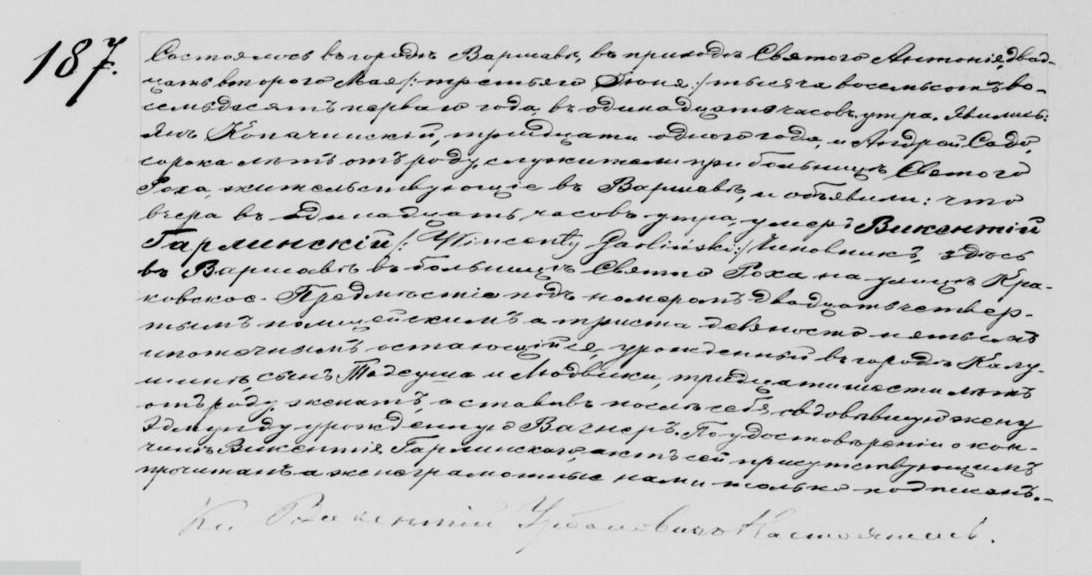 187.
Состоялось въ городѣ Варшавѣ, въ приходѣ Святого Антонія, двад-
цать второго Мая /: третьяго Іюня :/ тысяча восемьсотъ во-
семьдесятъ перваго года, въ одинадцать часовъ утра. Явились:
Янъ Копачинскій, тридцати одного года, и Андрей Садо,
сорока лѣтъ отъ роду, служители при больницѣ Святого
Роха, жительствующіе въ Варшавѣ, и объявили: что
вчера въ одинадцать часовъ утра, умеръ Викентій
Гарлинскій /: Wincenty Garliński :/ чиновникъ, здѣсь
въ Варшавѣ въ больницѣ Святого Роха на улицѣ Кра-
ковское-Предмѣстіе подъ номеромъ двадцать четвер-
тымъ полицейскимъ а триста девяносто пятымъ
ипотечнымъ остающійся, урожденный въ городѣ Калу-
шинѣ, сынъ Тадеуша и Людвики, тридцати шести лѣтъ
отъ роду, женатъ, оставивъ послѣ себя овдовѣвшую жену
Эдмунду урожденную Вагнеръ. По удостовѣреніи о кон-
чинѣ Викентія Гарлинскаго, актъ сей присутствующимъ
прочитанъ а неграмотные нами только подписанъ.-
Кс. Викентій Настоятель.